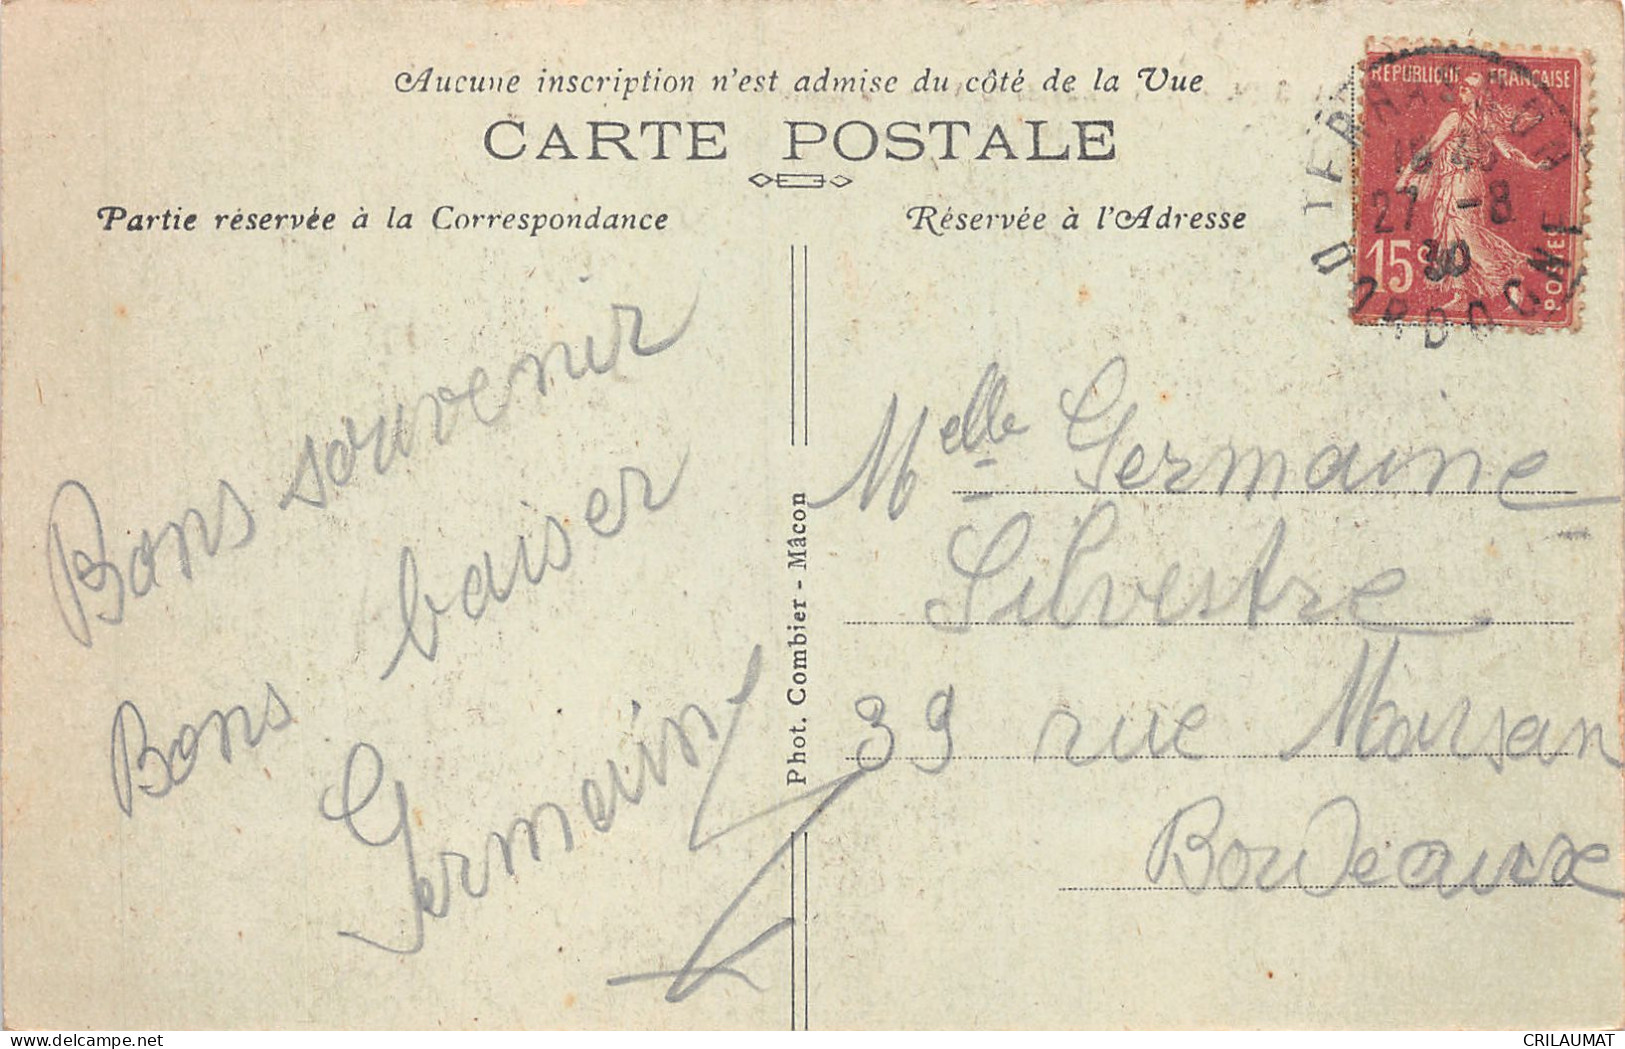 Aucune inscription n'est admise du côté de la Vue
CARTE POSTALE
Partie réservée à la Correspondance
Réservée à l'Adresse
REPUBLIQUE FRANÇAISE
15c
POSTES
TERRASSON
27 -8
30
DORDOGNE
Bons souvenir
Bons baiser
Germain
Phot. Combier - Mâcon
Melle Germaine
Silvestre
39 rue Marsan
Bordeaux
delcampe.net
CRILAUMAT